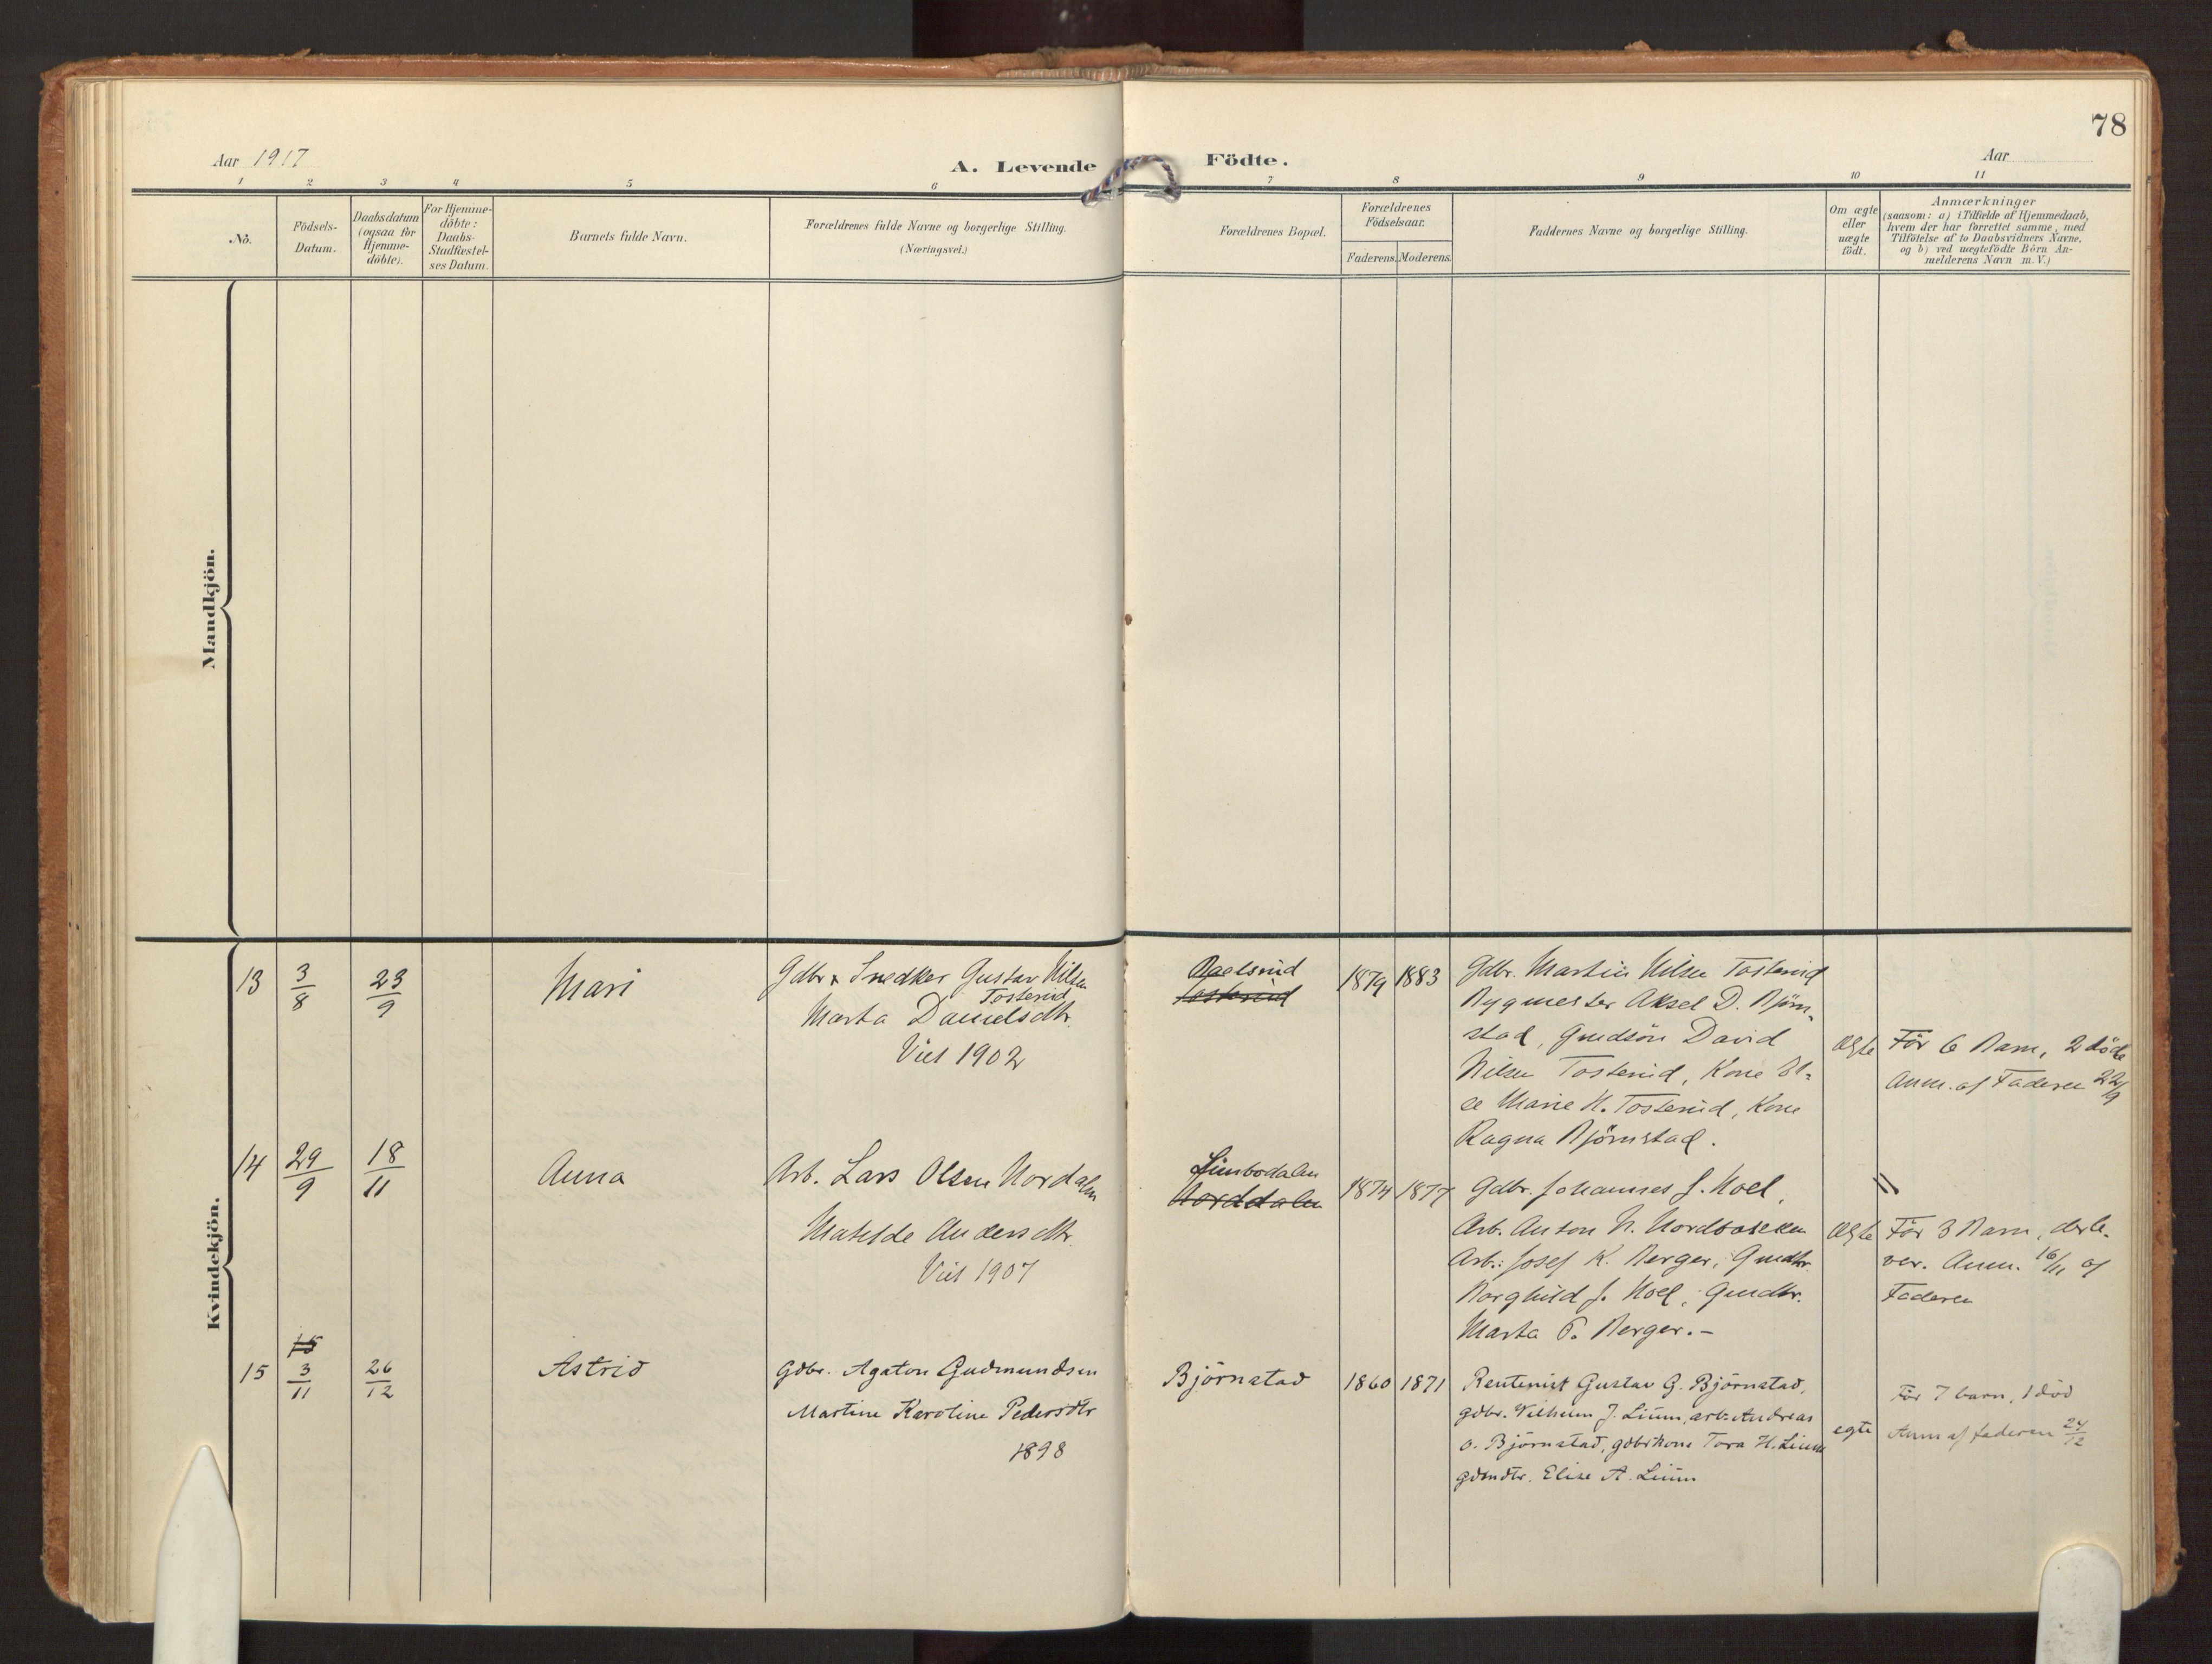 78
Aar 1917
A. Levende Födte.
Aar
1 2 3 4 5 6 7 8 9 10 11
No.
Födsels-
Datum.
Daabsdatum
(ogsaa for
Hjemme-
döbte).
For Hjemme-
döbte:
Daabs-
Stadfæstel-
ses Datum.
Barnets fulde Navn.
Forældrenes fulde Navne og borgerlige Stilling.
(Næringsvei.)
Forældrenes Bopæl.
Forældrenes
Födselsaar.
Faderens. Moderens.
Faddernes Navne og borgerlige Stilling.
Om ægte
eller
uægte
födt.
Anmærkninger
(saasom: a) i Tilfælde af Hjemmedaab,
hvem der har forrettet samme, med
Tilföielse af to Daabsvidners Navne,
og b) ved uægtefödte Börn An-
melderens Navn m. V.)
Mandkjön.
Kvindekjön.
13
3/8
23/9
Mari
Gdbr & Snedker Gustav Nilsen
Tosterud
Marta Danielsdtr.
Viet 1902
Tosterud
1879 1883
Gdbr. Martin Nilsen Tosterud
Bygmester Aksel D. Björn-
stad, Gmdsön David
Nilsen Tosterud, Kone El-
se Marie N. Tosterud, Kone
Ragna Björnstad.
Ægte
Før 6 Barn, 2 döde
Anm. af Faderen 22/9
14
29/9
18/11
Anna
Arb. Lars Olsen Nordalen
Matilde Andersdtr.
Viet 1907
Limbodalen
Norddalen
1874 1877
Gdbr. Johannes J. Moel,
Arb. Anton N. Nordbakken
Arb.: Josef K. Berger, Gmdtr.
Borghild J. Moel, Gmdtr.
Marta P. Berger.-
Ægte
"
Før 3 Barn, der le-
ver. Anm. 16/11 af
Faderen
15
15
3/11
26/12
Astrid
Gdbr. Agaton Gudmundsen
Martine Karoline Pedersdtr
1898
Björnstad
1860 1871
Rentenist Gustav G. Björnstad,
gdbr. Vilhelm J. Lium, arb. Andreas
O. Björnstad, gdbrkone Tora H. Lium
gdmdtr. Elise A. Lium
egte
Før 7 barn, 1 död
Anm af faderen 24/12